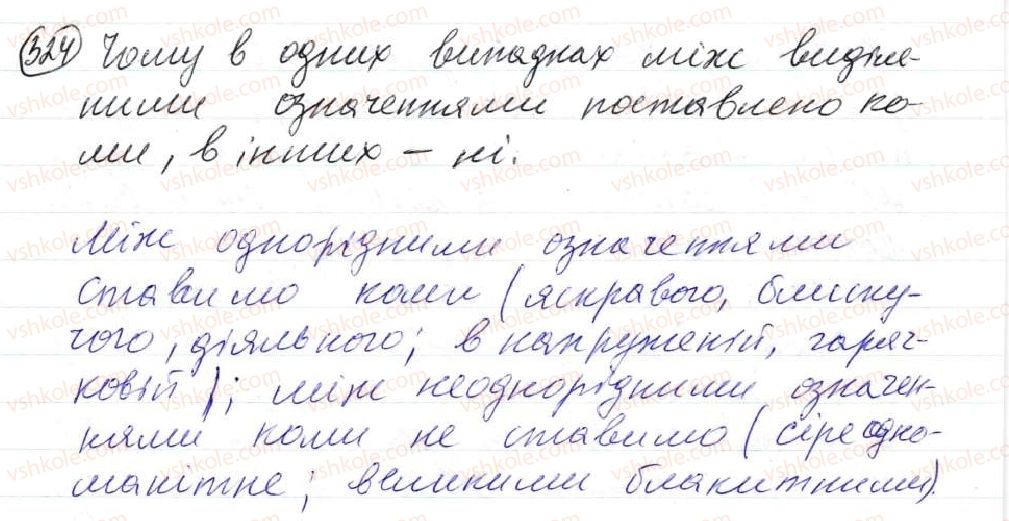 324 Чому в одних випадках між виділе-
ними означеннями поставлено ко-
ми, в інших – ні.
Між однорідними означеннями
ставимо коми (яскравого, блиску-
чого, діяльного; в напруженій, гаряч-
ковій); між неоднорідними означен-
нями коми не ставимо (сіре одно-
манітне; великими блакитними).